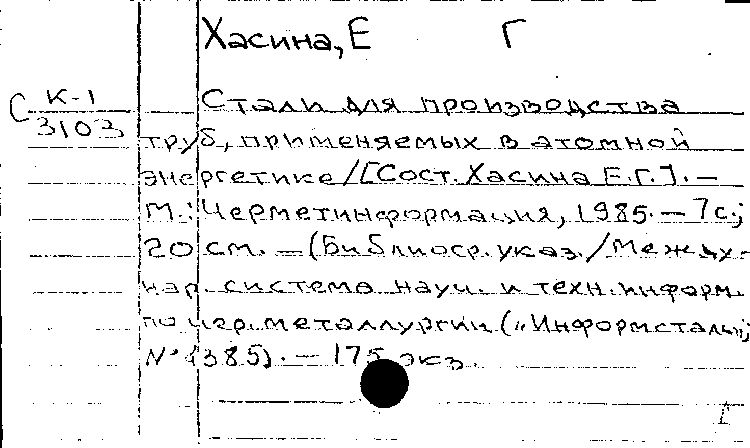 Хасина, Е Г
С К-1
3103
Стали для производства
труб, применяемых в атомной
энергетике/[Сост. Хасина Е.Г.]. —
М.: Черметинформация, 1985. — 7с.;
20 см. — (Библиогр. указ./Между-
нар. система науч. и техн. информ.
по чер. металлургии („Информсталь";
№ (385). — 175 экз.